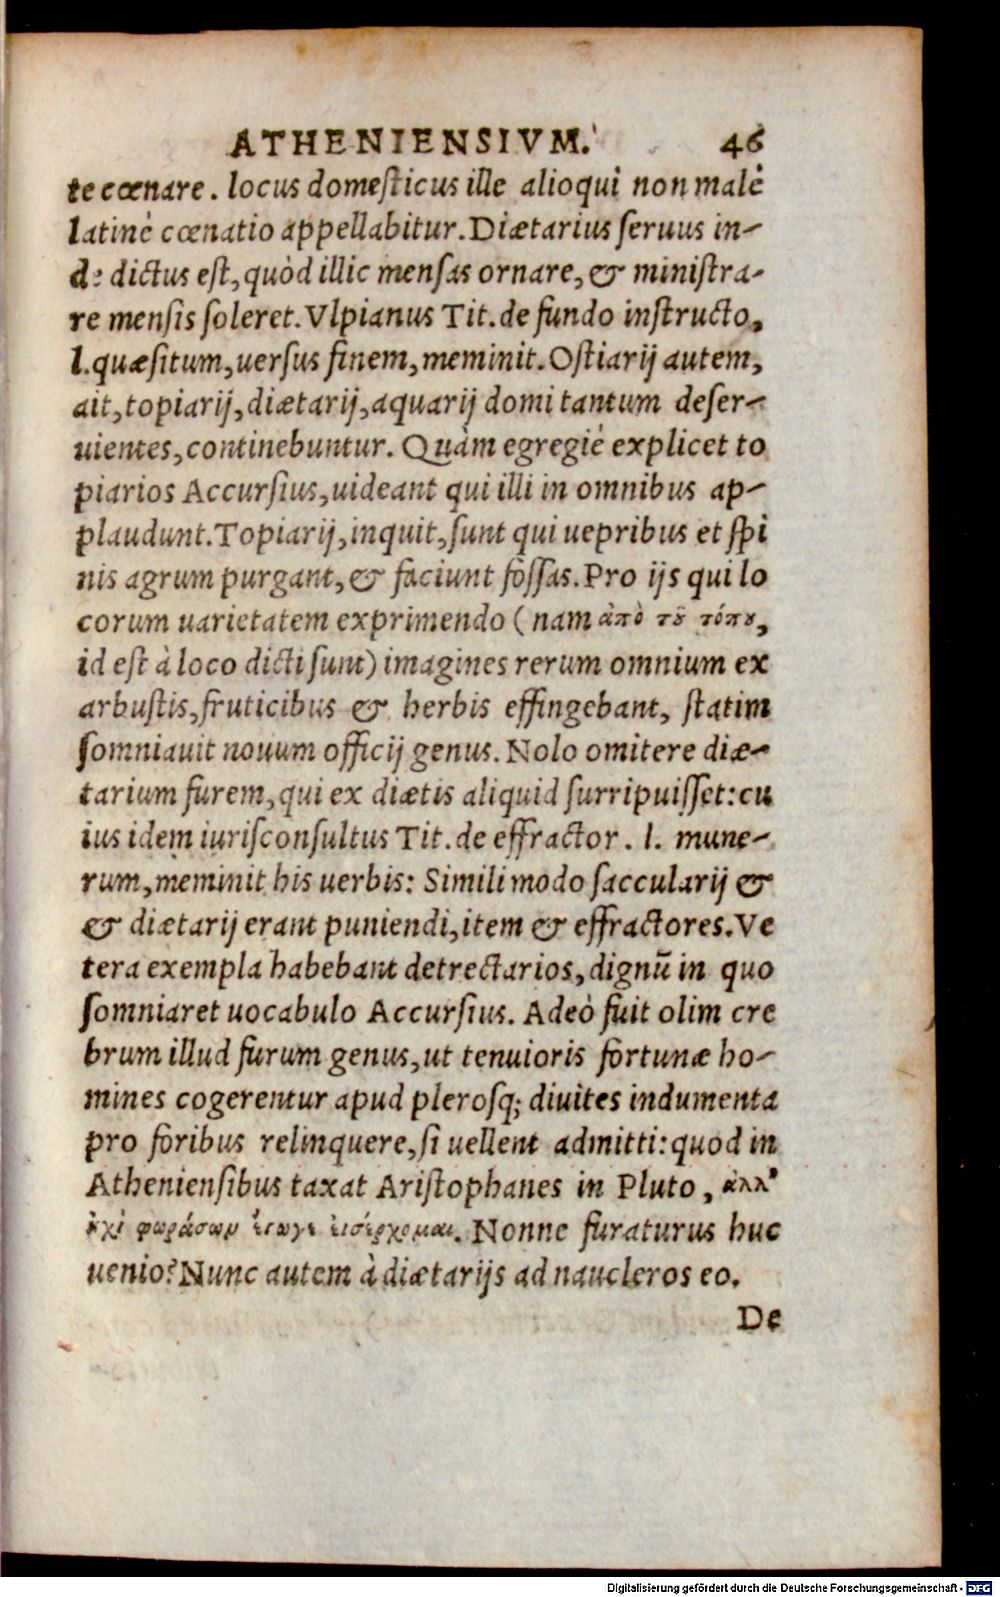 ATHENIENSIVM. 46
te cœnare. locus domesticus ille alioqui non malè
latinè cœnatio appellabitur. Diætarius seruus in-
de dictus est, quòd illic mensas ornare, & ministra-
re mensis soleret. Vlpianus Tit. de fundo instructo,
l. quæsitum, uersus finem, meminit. Ostiarij autem,
ait, topiarij, diætarij, aquarij domi tantum deser-
uientes, continebuntur. Quàm egregiè explicet to
piarios Accursius, uideant qui illi in omnibus ap-
plaudunt. Topiarij, inquit, sunt qui uepribus et spi
nis agrum purgant, & faciunt fossas. Pro ijs qui lo
corum uarietatem exprimendo (nam ἀπὸ τȣ͂ τόπȣ,
id est à loco dicti sunt) imagines rerum omnium ex
arbustis, fruticibus & herbis effingebant, statim
somniauit nouum officij genus. Nolo omitere diæ-
tarium furem, qui ex diætis aliquid surripuisset: cu
ius idem iurisconsultus Tit. de effractor. l. mune-
rum, meminit his uerbis: Simili modo saccularij &
& diætarij erant puniendi, item & effractores. Ve
tera exempla habebant detrectarios, dignū in quo
somniaret uocabulo Accursius. Adeò fuit olim cre
brum illud furum genus, ut tenuioris fortunæ ho-
mines cogerentur apud plerosq; diuites indumenta
pro foribus relinquere, si uellent admitti: quod in
Atheniensibus taxat Aristophanes in Pluto, ἀλλ'
ȣ̓χὶ φωράσων ἔγωγε εἰσέρχομαι. Nonne furaturus huc
uenio? Nunc autem à diætarijs ad naucleros eo.
De
Digitalisierung gefördert durch die Deutsche Forschungsgemeinschaft - DFG